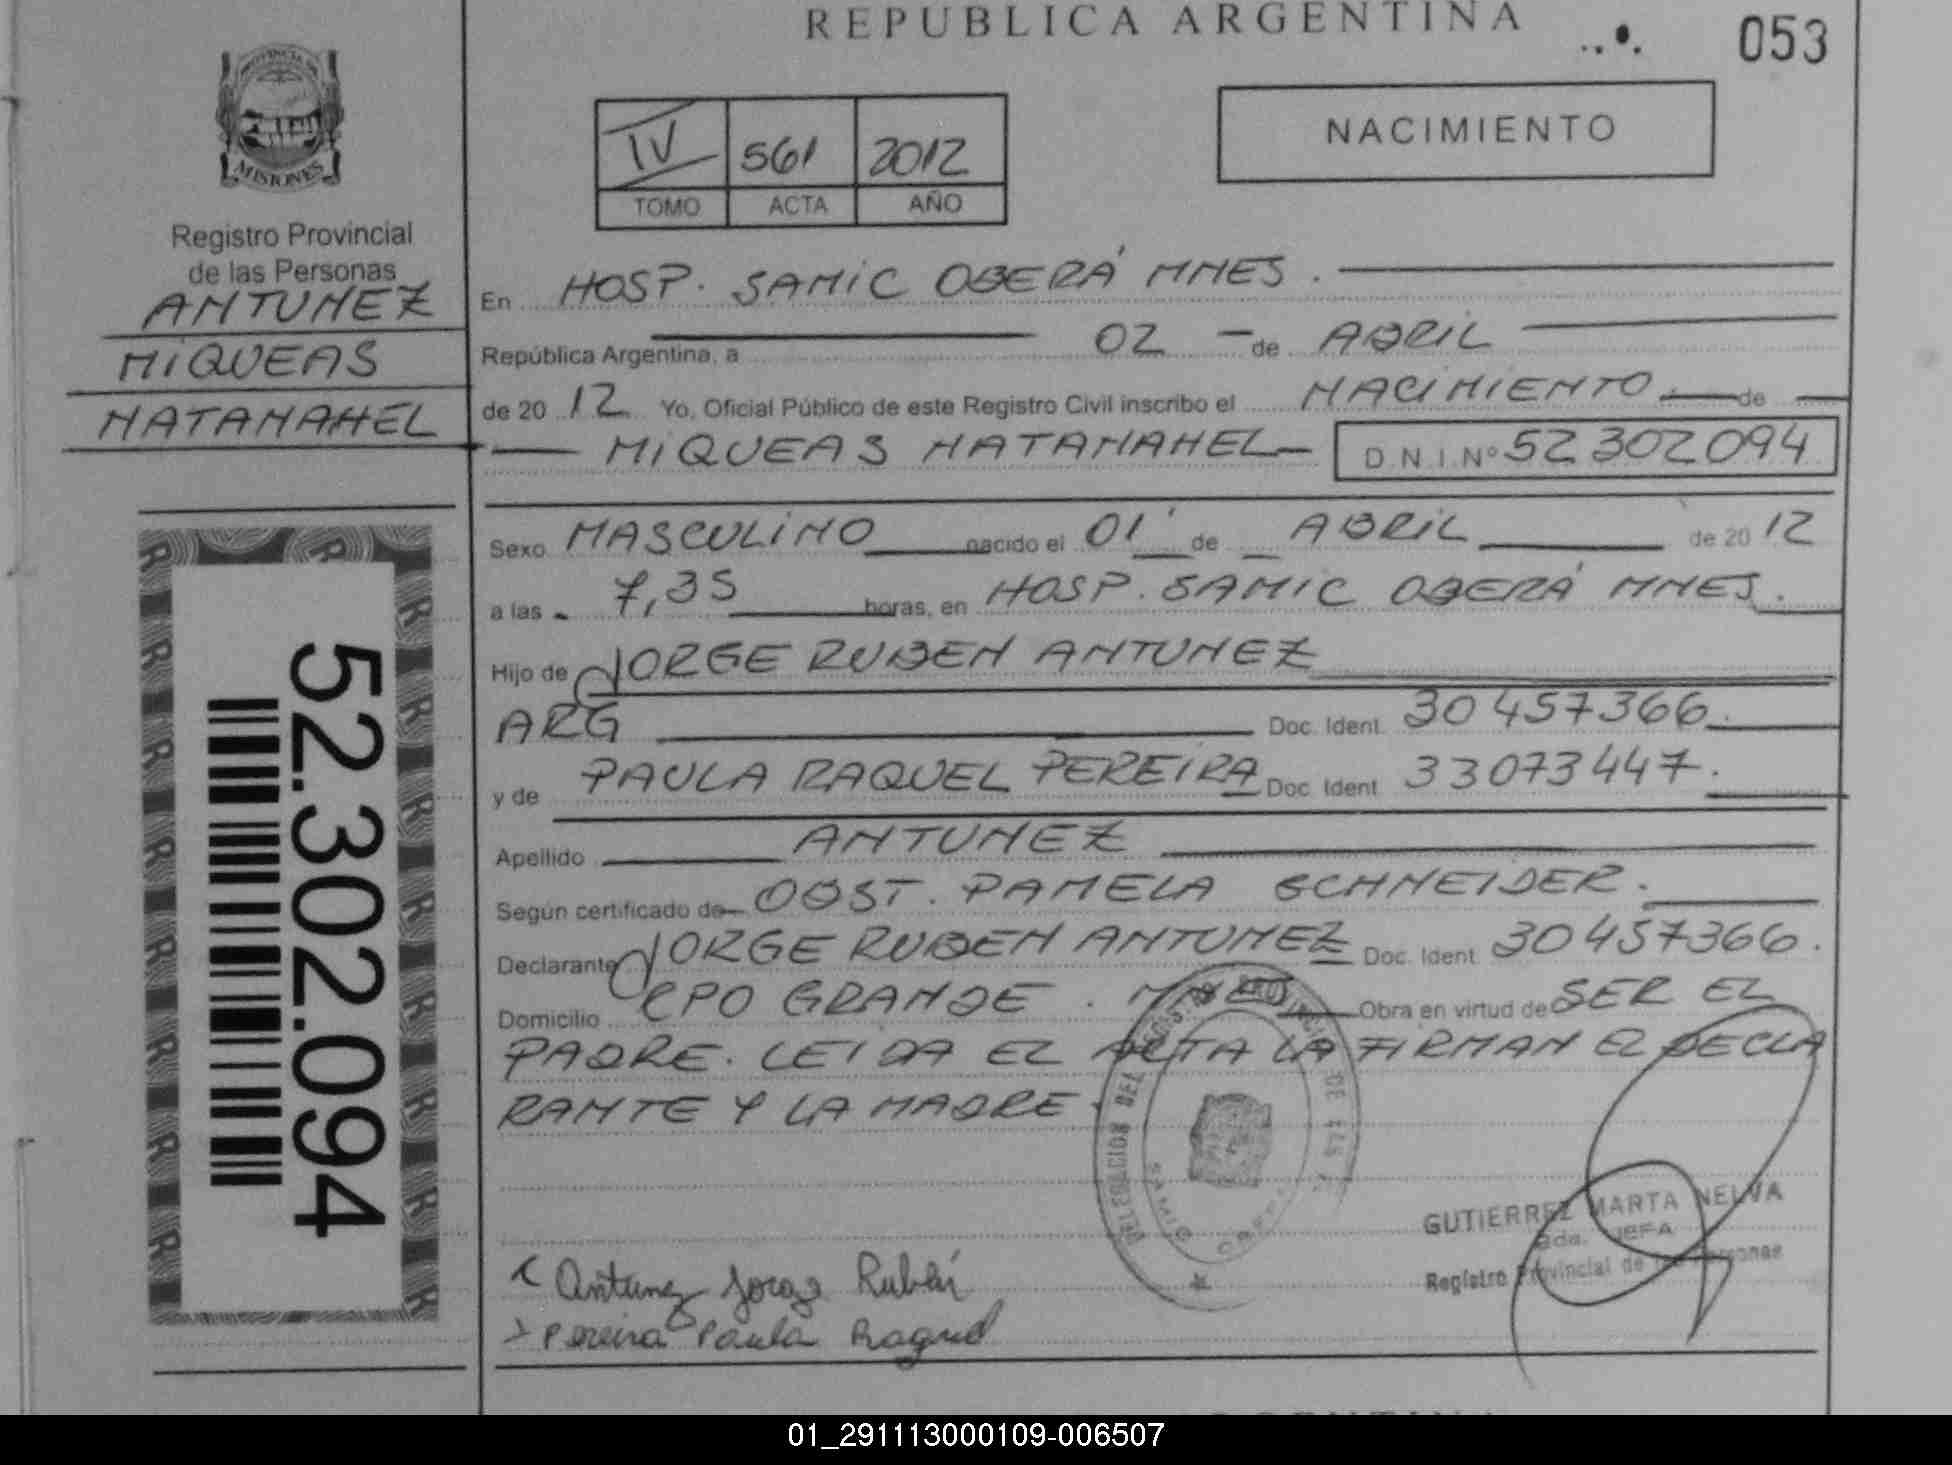 REPUBLICA ARGENTINA
053
PROVINCIA DE
MISIONES
Registro Provincial
de las Personas
ANTUNEZ
MIQUEAS
NATANAHEL
52.302.094
IV 561 2012
TOMO ACTA AÑO
NACIMIENTO
En HOSP. SAMIC OBERÁ MNES.
República Argentina, a 02 de ABRIL
de 2012 Yo, Oficial Público de este Registro Civil inscribo el NACIMIENTO de
MIQUEAS NATANAHEL D.N.I.Nº 52302094
Sexo MASCULINO nacido el 01 de ABRIL de 2012
a las 7,35 horas, en HOSP. SAMIC OBERÁ MNES.
Hijo de JORGE RUBEN ANTUNEZ
ARG Doc. Ident. 30457366.
y de PAULA RAQUEL PEREIRA Doc. Ident. 33073447.
Apellido ANTUNEZ
Según certificado de OBST. PAMELA SCHNEIDER.
Declarante JORGE RUBEN ANTUNEZ Doc. Ident. 30457366.
Domicilio CPO GRANDE. MNES Obra en virtud de SER EL
PADRE. LEIDA EL ACTA LA FIRMAN EL DECLA
RANTE Y LA MADRE.
DELEGACION DEL
SAMIC
GUTIERREZ MARTA NELVA
2da. JEFA
Registro Provincial de las Personas
Antunez Jorge Rubén
Pereira Paula Raquel
01_291113000109-006507